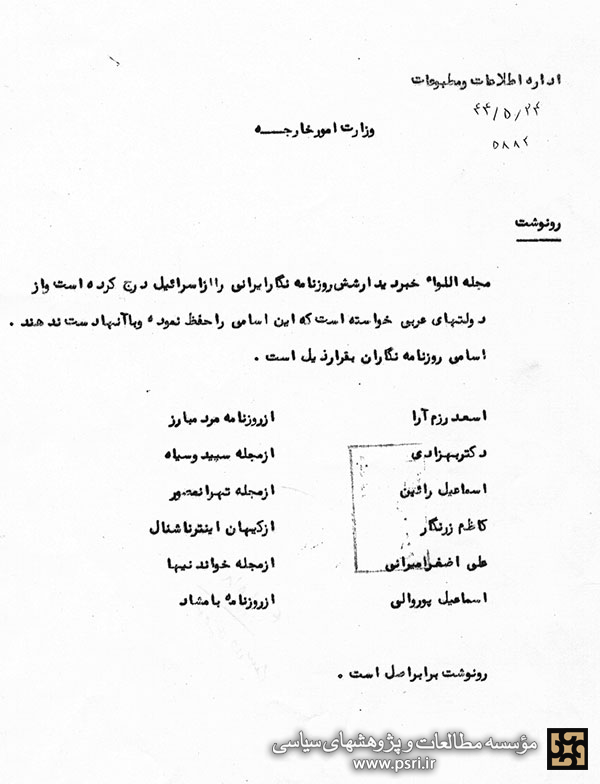 اداره اطلاعات ومطبوعات
۴۴/۵/۲۴
۵۸۸۲
وزارت امورخارجـــه
رونوشت
مجله اللواء خبردیدارشش روزنامه نگارایرانی را ازاسرائیل درج کرده است واز
دولتهای عربی خواسته است که این اسامی راحفظ نموده وباآنهادست ندهند .
اسامی روزنامه نگاران بقرارذیل است .
اسعدرزم آرا ازروزنامه مردمبارز
دکتربهزادی ازمجله سپیدوسیاه
اسماعیل رائین ازمجله تهرانمصور
کاظم زرنگار ازکیهان اینترناشنال
علی اصغرامیرانی ازمجله خواندنیها
اسماعیل پوروالی ازروزنامه بامشاد
رونوشت برابراصل است .
مؤسسه مطالعات و پژوهشهای سیاسی
www.psri.ir